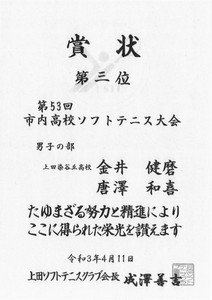 賞状
第三位
第53回
市内高校ソフトテニス大会
男子の部
上田染谷丘高校 金井 健磨
唐澤 和喜
たゆまざる努力と精進により
ここに得られた栄光を讃えます
令和3年4月11日
上田ソフトテニスクラブ会長 成澤善吉